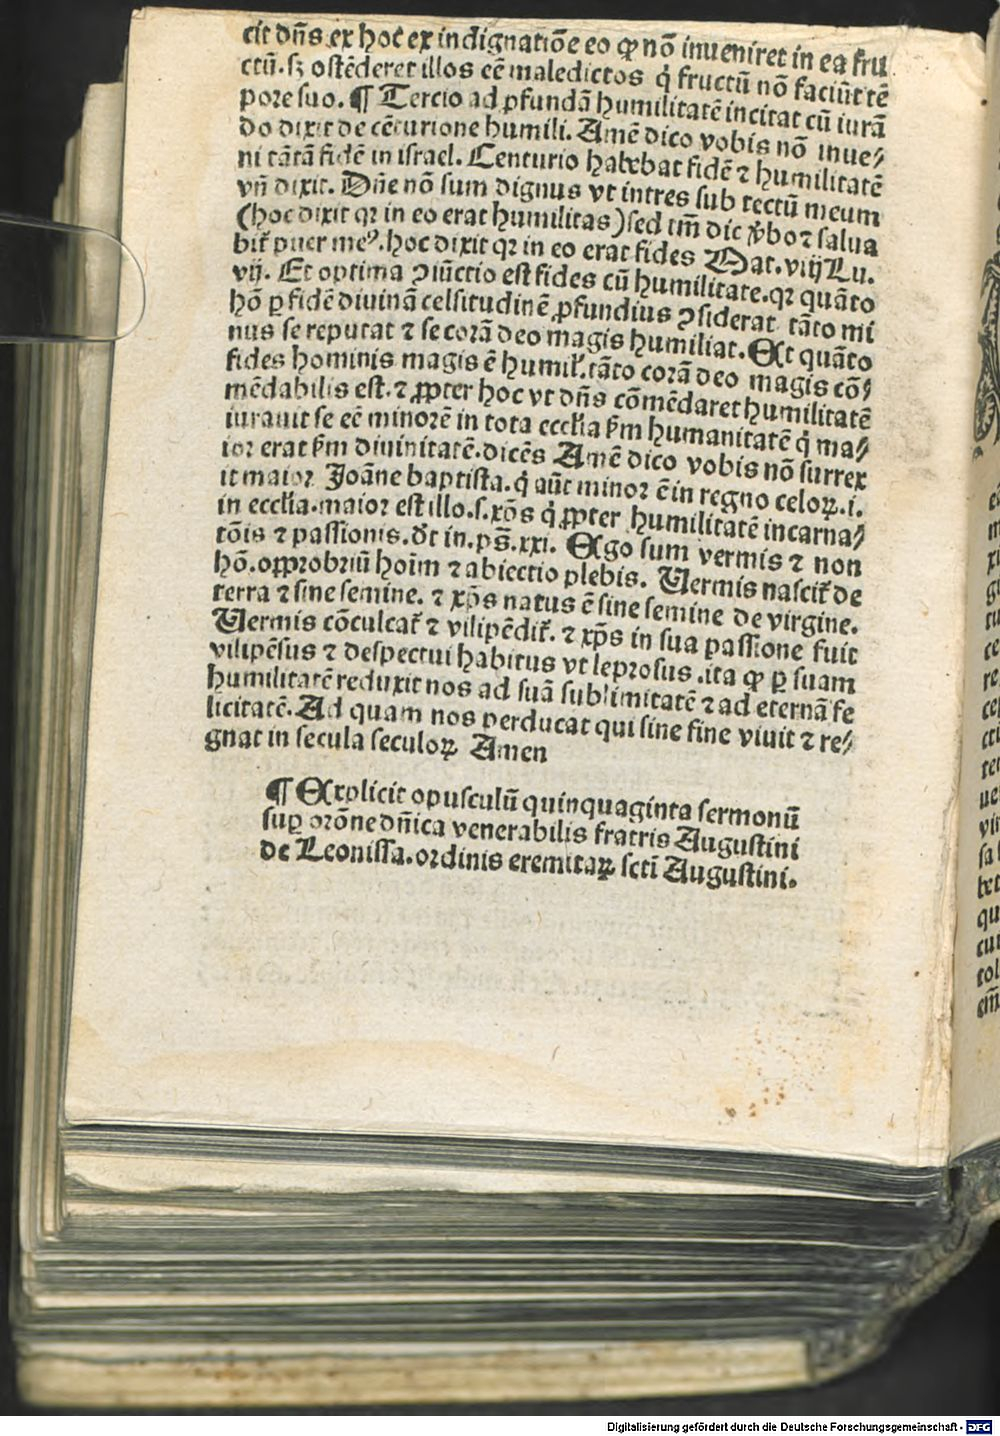 cit dn̄s ex hoc ex indignatiōe eo ꝙ nō inueniret in ea fru
ctū. sꝫ ostēderet illos eē maledictos q̇ fructū nō faciūt tē
pore suo. ¶ Tercio ad ꝓfundā humilitatē incitat cū iurā
do dixit de cēturione humili. Amē dico vobis nō inue⸗
ni tātā fidē in israel. Centurio habebat fidē ⁊ humilitatē
vn̄ dixit. Dn̄e nō sum dignus vt intres sub tectū meum
(hoc dixit qꝛ in eo erat humilitas) sed tm̄ dic ꝟbo ⁊ salua
bit᷑ puer meꝰ. hoc dixit qꝛ in eo erat fides Mat. viij Lu.
vij. Et optima ꝯiūctio est fides cū humilitate. qꝛ quāto
hō ꝑ fidē diuinā celsitudinē ꝓfundius ꝯsiderat tāto mi
nus se reputat ⁊ se corā deo magis humiliat. Et quāto
fides hominis magis ē humil᷑. tāto corā deo magis cō⸗
mēdabilis est. ⁊ ꝓpter hoc vt dn̄s cōmēdaret humilitatē
iurauit se eē minorē in tota ecclīa ẜm humanitatē q̇ ma⸗
ior erat ẜm diuinitatē. dicēs Amē dico vobis nō surrex
it maior Joāne baptista. q̇ aūt minor ē in regno celoꝝ. i.
in ecclīa. maior est illo. s. xp̄s q̇ ꝓpter humilitatē incarna⸗
tōis ⁊ passionis. d͛t in. ps̄. xxi. Ego sum vermis ⁊ non
hō. opprobriū hoīm ⁊ abiectio plebis. Uermis nascit᷑ de
terra ⁊ sine semine. ⁊ xp̄s natus ē sine semine de virgine.
Uermis cōculcat᷑ ⁊ vilipēdit᷑. ⁊ xp̄s in sua passione fuit
vilipēsus ⁊ despectui habitus vt leprosus. ita ꝙ ꝑ suam
humilitatē reduxit nos ad suā sublimitatē ⁊ ad eternā fe
licitatē. Ad quam nos perducat qui sine fine viuit ⁊ re⸗
gnat in secula seculoꝝ Amen
¶ Explicit opusculū quinquaginta sermonū
suꝑ orōne dn̄ica venerabilis fratris Augustini
de Leonissa. ordinis eremitaꝝ scti Augustini.
Digitalisierung gefördert durch die Deutsche Forschungsgemeinschaft - DFG